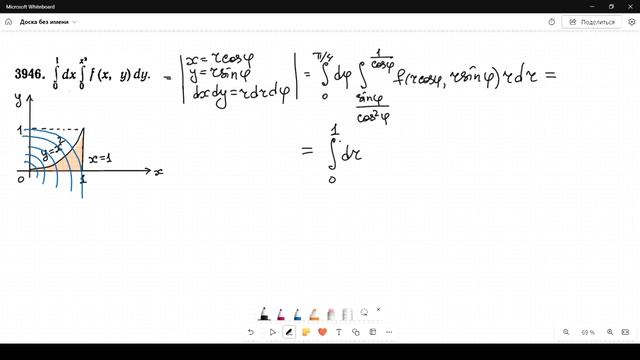 Microsoft Whiteboard
Доска без имени
Поделиться
3946. ∫₀¹ dx ∫₀^{x²} f (x, y) dy. = | x = rcosφ y = rsinφ dxdy = rdrdφ | = ∫₀^{π/4} dφ ∫_{sinφ/cos²φ}^{1/cosφ} f(rcosφ, rsinφ) r dr =
= ∫₀¹ dr
y
1
y=x²
x=1
0
1
x
69 %